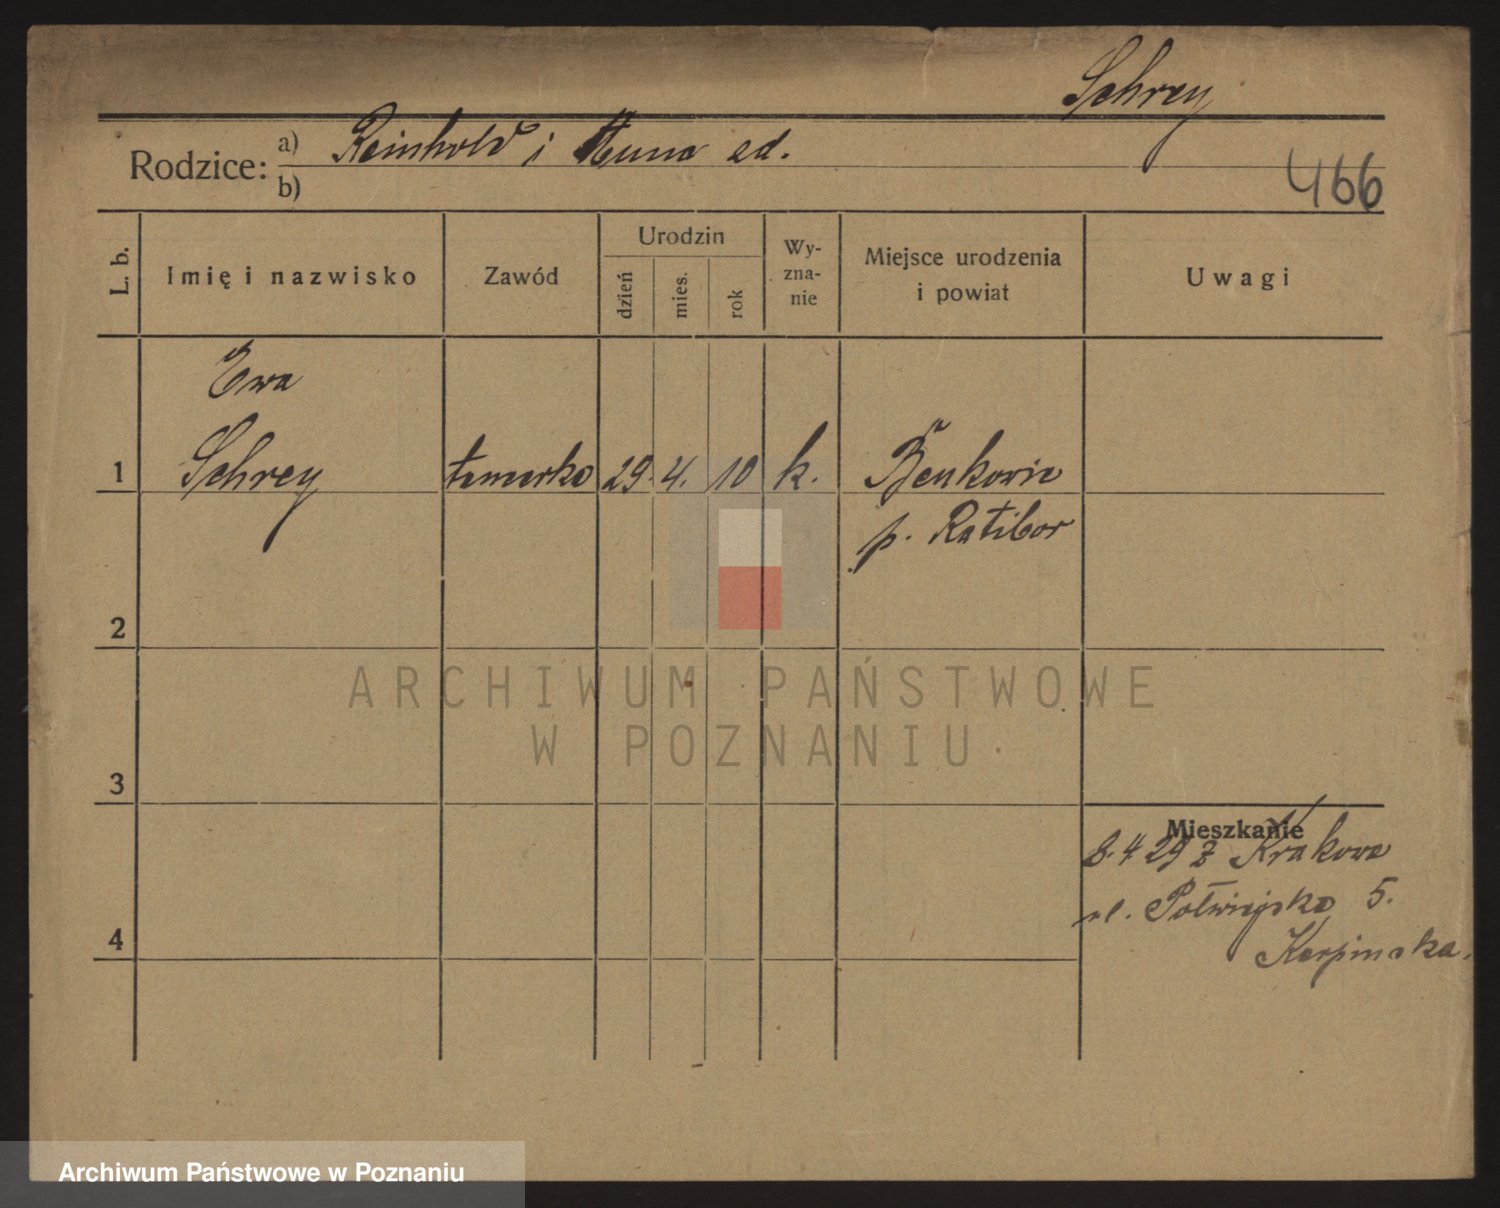 Schrey
Rodzice: a) Reinhold i Anna ed.
b)
466
L. b.
Imię i nazwisko
Zawód
Urodzin
dzień
mies.
rok
Wy-
zna-
nie
Miejsce urodzenia
i powiat
Uwagi
Ewa
1 Schrey
29. 4. 10 k. Benkowic
p. Ratibor
2
3
4
Mieszkanie
8.4 29 z Krakowa
ul. Półwiejska 5.
Karpinska.
ARCHIWUM PAŃSTWOWE
W POZNANIU
Archiwum Państwowe w Poznaniu